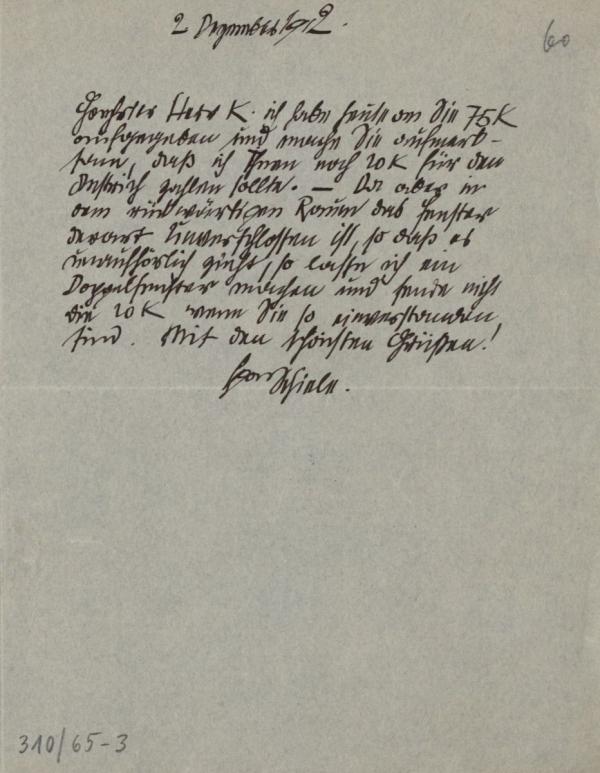 2 Dezember 1912.
60
Geehrter Herr K. ich habe heute an Sie 75 K
aufgegeben und mache Sie aufmerk-
sam, daß ich Ihnen noch 20 K für den
Anstrich zahlen sollte. — Da aber in
dem rückwärtigen Raum das Fenster
derart unverschlossen ist, so daß es
unaufhörlich zieht, so lasse ich ein
Doppelfenster machen und sende nicht
die 20 K wenn Sie so einverstanden
sind. Mit den schönsten Grüßen!
Schiele.
310/65-3